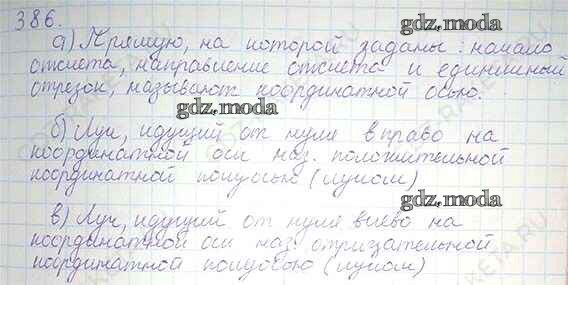 386.
gdz.moda
а) Прямую, на которой заданы : начало
отсчета, направление отсчета и единичный
отрезок, называют координатной осью.
gdz.moda
б) Луч, идущий от нуля вправо на
координатной оси наз. положительной
координатной полуосью (лучом)
gdz.moda
в) Луч, идущий от нуля влево на
координатной оси наз. отрицательной
координатной полуосью (лучом)